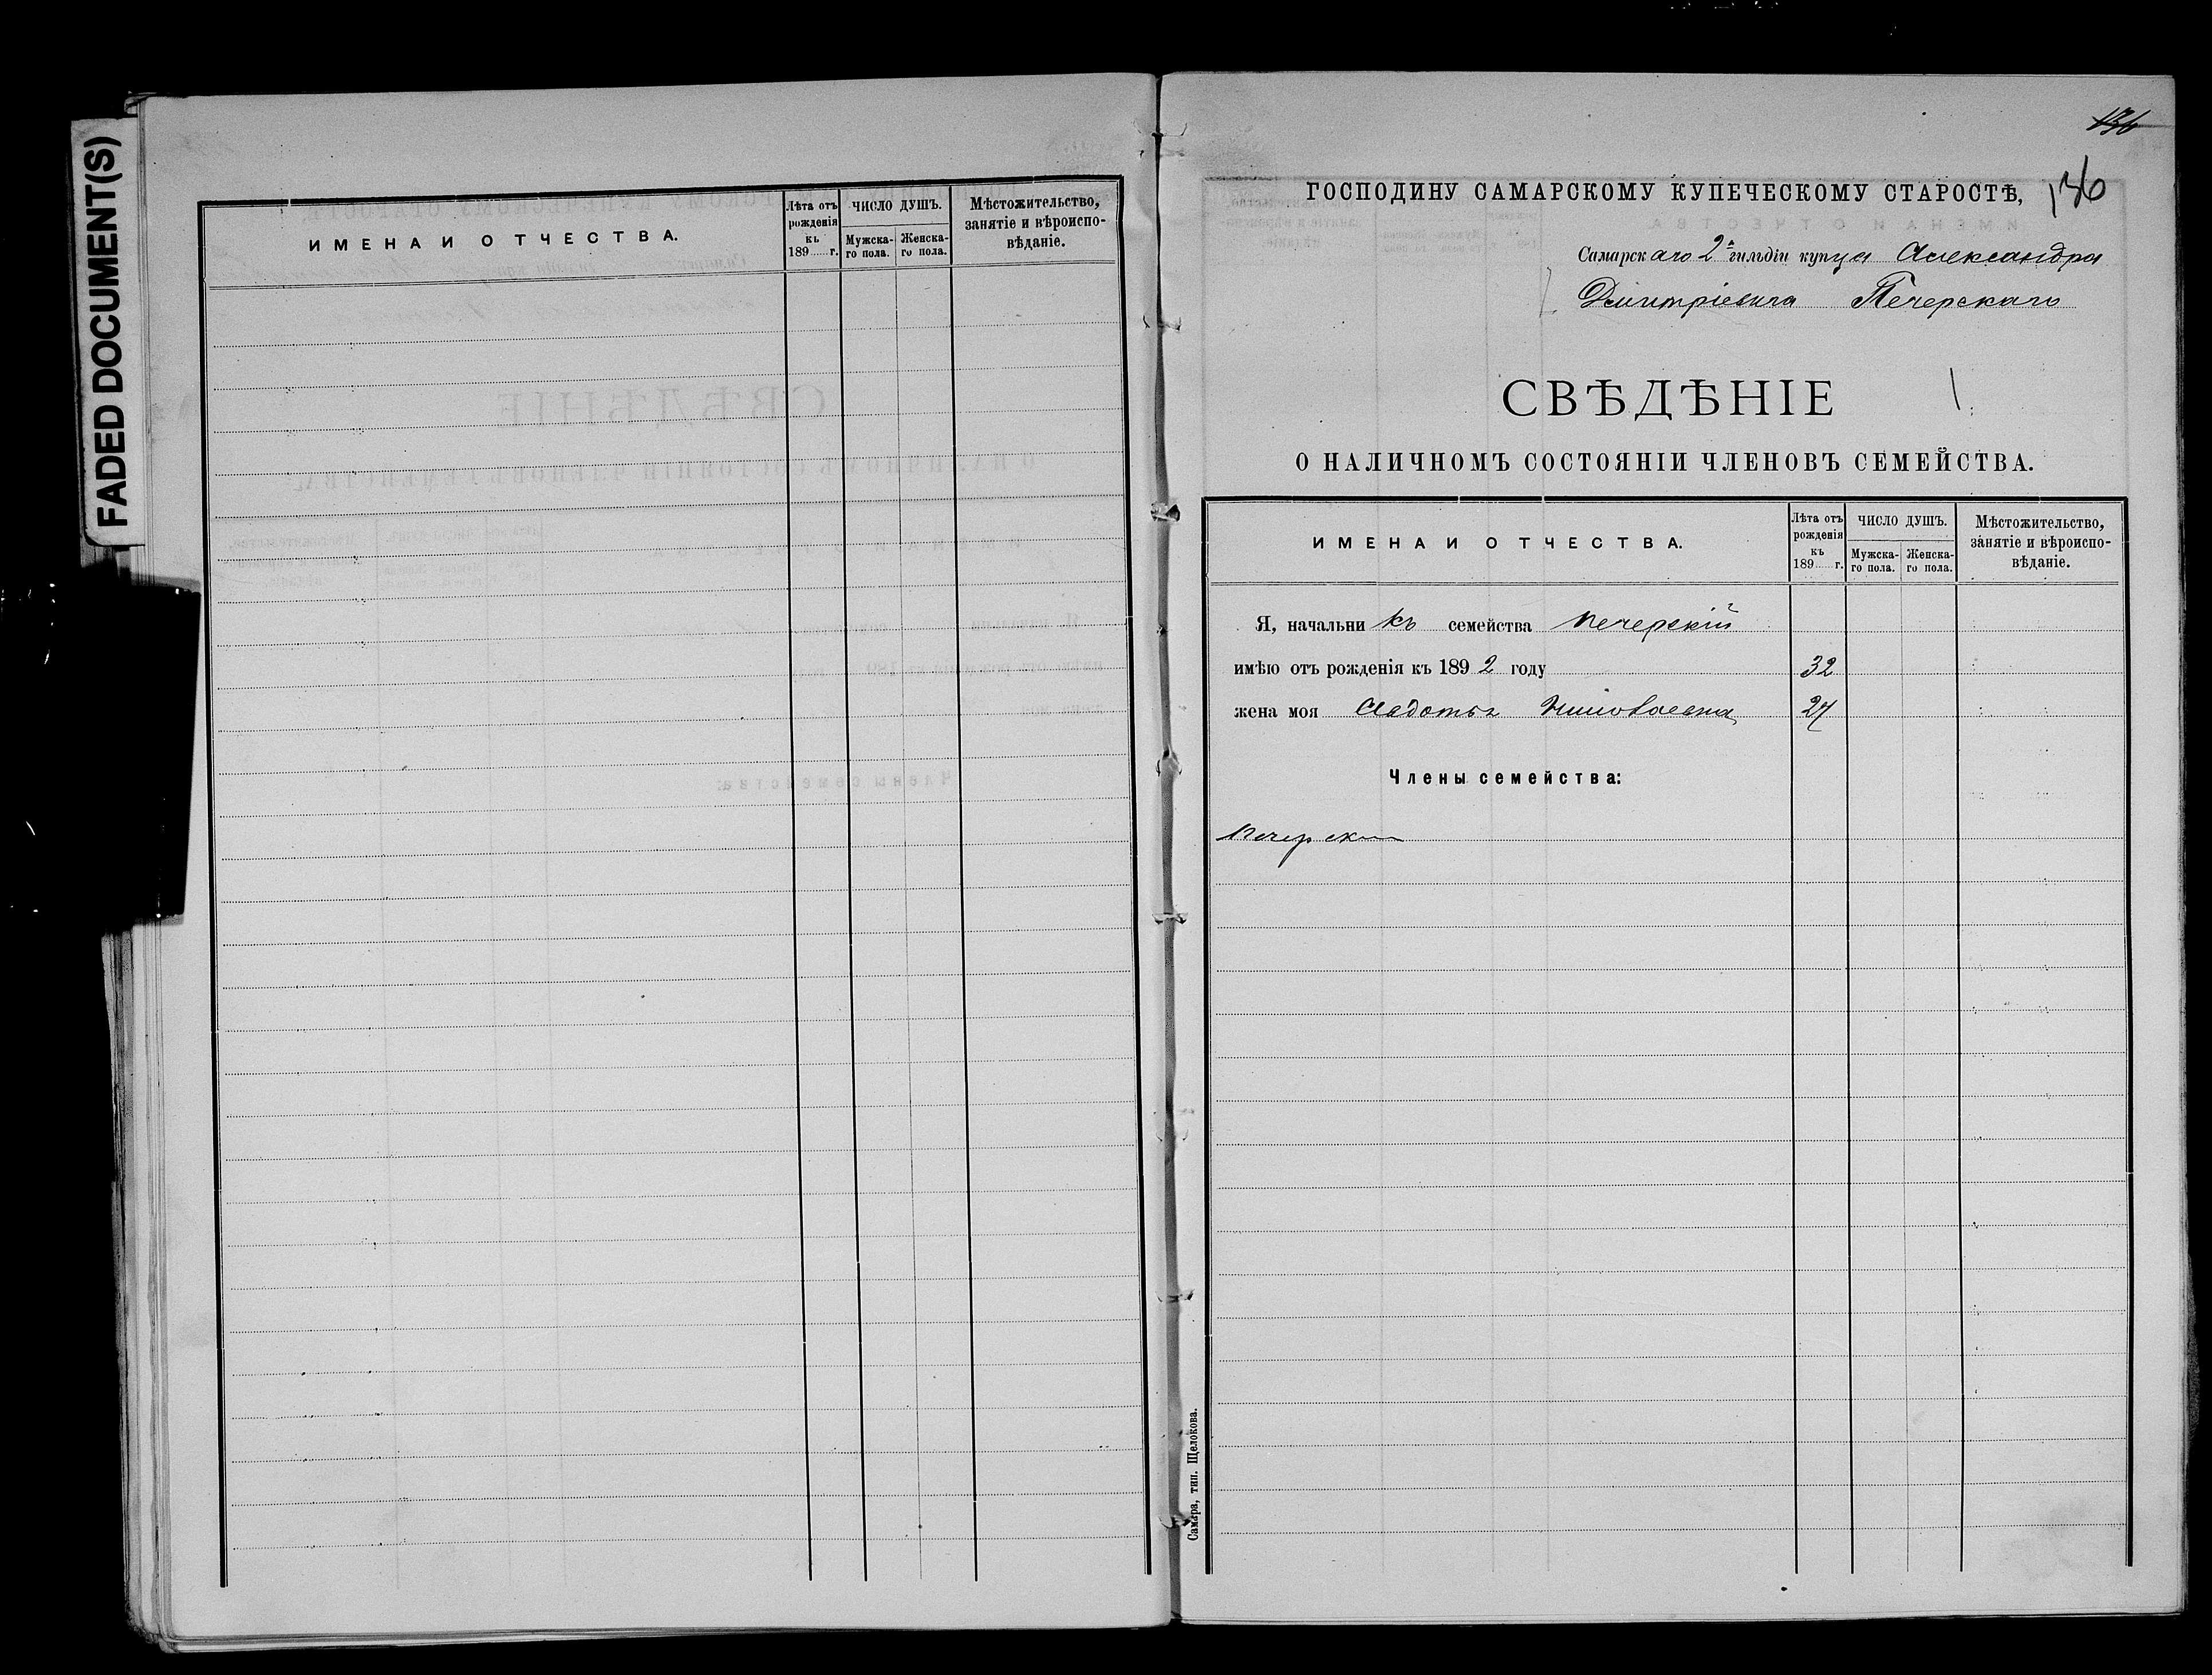 FADED DOCUMENT(S)
ИМЕНА И ОТЧЕСТВА.
Лѣта отъ рожденія къ 189 г.
ЧИСЛО ДУШЪ.
Мужска-го пола.
Женска-го пола.
Мѣстожительство,
занятіе и вѣроиспо-
вѣданіе.
136
ГОСПОДИНУ САМАРСКОМУ КУПЕЧЕСКОМУ СТАРОСТѢ,
136
Самарскаго 2й гильдіи купца Александра
Дмитріевича Печерскаго
СВѢДѢНІЕ
О НАЛИЧНОМЪ СОСТОЯНІИ ЧЛЕНОВЪ СЕМЕЙСТВА.
ИМЕНА И ОТЧЕСТВА.
Лѣта отъ рожденія къ 189 г.
ЧИСЛО ДУШЪ.
Мужска-го пола.
Женска-го пола.
Мѣстожительство,
занятіе и вѣроиспо-
вѣданіе.
Я, начальникъ семейства Печерскій
имѣю отъ рожденія къ 1892 году 32
жена моя Авдотья 27
Члены семейства:
Самара, тип. Щелокова.